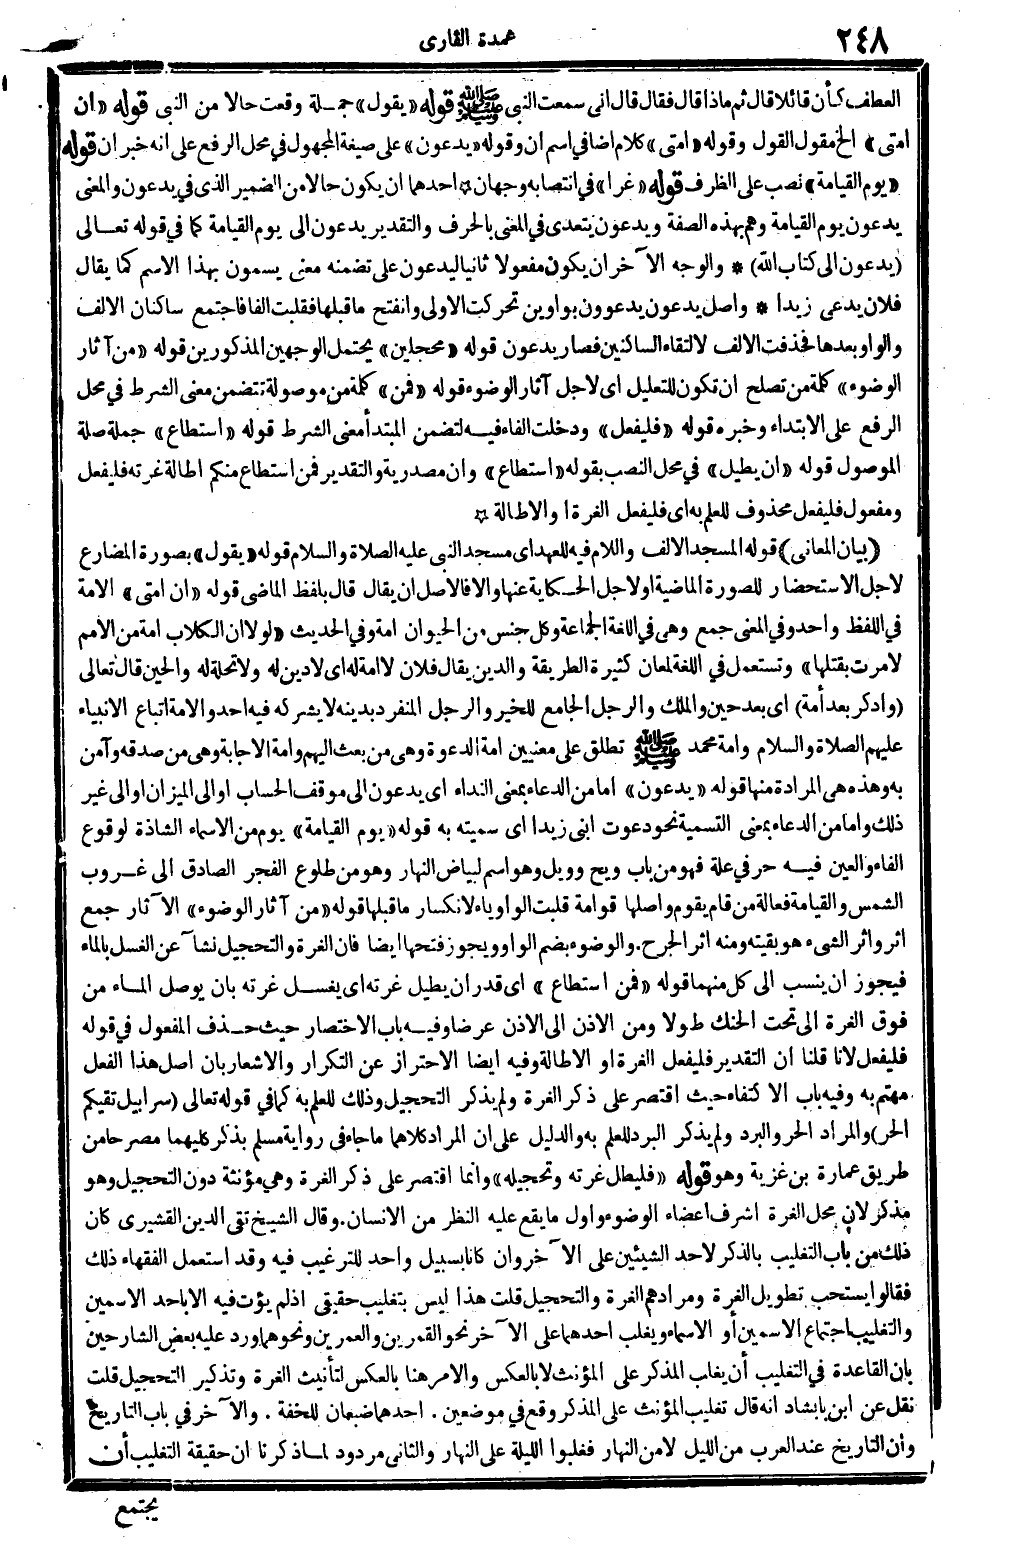 ٢٤٨
عمدة القارى
العطف كأن قائلا قال ثم ماذا قال فقال قال انى سمعت النبى ﷺ قوله «يقول» جملة وقعت حالا من النبى قوله «ان
امتى» الخ مقول القول وقوله «امتى» كلام اضافى اسم ان وقوله «يدعون» على صيغة المجهول فى محل الرفع على انه خبر ان قوله
«يوم القيامة» نصب على الظرف قوله «غرا» فى انتصابه وجهان ☆ احدهما ان يكون حالا من الضمير الذى فى يدعون والمعنى
يدعون يوم القيامة وهم بهذه الصفة ويدعون يتعدى فى المعنى بالحرف والتقدير يدعون الى يوم القيامة كما فى قوله تعالى
(يدعون الى كتاب الله) * والوجه الآخر ان يكون مفعولا ثانيا ليدعون على تضمنه معنى يسمون بهذا الاسم كما يقال
فلان يدعى زيدا * واصل يدعون يدعوون بواوين تحركت الاولى وانفتح ماقبلها فقلبت الفا فاجتمع ساكنان الالف
والواو بعدها فحذفت الالف لالتقاء الساكنين فصار يدعون قوله «محجلين» يحتمل الوجهين المذكورين قوله «من آثار
الوضوء» كلمة من تصلح ان تكون للتعليل اى لاجل آثار الوضوء قوله «فمن» كلمة من موصولة تتضمن معنى الشرط فى محل
الرفع على الابتداء وخبره قوله «فليفعل» ودخلت الفاء فيه لتضمن المبتدأ معنى الشرط قوله «استطاع» جملة صلة
الموصول قوله «ان يطيل» فى محل النصب بقوله «استطاع» وان مصدرية والتقدير فمن استطاع منكم اطالة غرته فليفعل
ومفعول فليفعل محذوف للعلم به اى فليفعل الغرة او الاطالة ☆
(بيان المعانى) قوله المسجد الالف واللام فيه للعهد اى مسجد النبى عليه الصلاة والسلام قوله «يقول» بصورة المضارع
لاجل الاستحضار للصورة الماضية او لاجل الحكاية عنها والا فالاصل ان يقال قال بلفظ الماضى قوله «ان امتى» الامة
فى اللفظ واحد وفى المعنى جمع وهى فى اللغة الجماعة وكل جنس من الحيوان امة وفى الحديث «لولا ان الكلاب امة من الأمم
لامرت بقتلها» وتستعمل فى اللغة لمعان كثيرة الطريقة والدين يقال فلان لا امة له اى لا دين له ولا نحلة له والحين قال تعالى
(وادكر بعد أمة) اى بعد حين والملك والرجل الجامع للخير والرجل المنفرد بدينه لا يشركه فيه احد والامة اتباع الانبياء
عليهم الصلاة والسلام وامة محمد ﷺ تطلق على معنيين امة الدعوة وهى من بعث اليهم وامة الاجابة وهى من صدقه وآمن
به وهذه هى المرادة منها قوله «يدعون» اما من الدعاء بمعنى النداء اى يدعون الى موقف الحساب او الى الميزان او الى غير
ذلك واما من الدعاء بمعنى التسمية نحو دعوت ابنى زيدا اى سميته به قوله «يوم القيامة» يوم من الاسماء الشاذة لوقوع
الفاء والعين فيه حرفى علة فهو من باب ويح وويل وهو اسم لبياض النهار وهو من طلوع الفجر الصادق الى غروب
الشمس والقيامة فعالة من قام يقوم واصلها قوامة قلبت الواو ياء لانكسار ماقبلها قوله «من آثار الوضوء» الآثار جمع
اثر واثر الشىء هو بقيته ومنه اثر الجرح. والوضوء بضم الواو ويجوز فتحها ايضا فان الغرة والتحجيل نشآ عن الغسل بالماء
فيجوز ان ينسب الى كل منهما قوله «فمن استطاع» اى قدر ان يطيل غرته اى يغسل غرته بان يوصل الماء من
فوق الغرة الى تحت الحنك طولا ومن الاذن الى الاذن عرضا وفيه باب الاختصار حيث حذف المفعول فى قوله
فليفعل لانا قلنا ان التقدير فليفعل الغرة او الاطالة وفيه ايضا الاحتراز عن التكرار والاشعار بان اصل هذا الفعل
مهتم به وفيه باب الاكتفاء حيث اقتصر على ذكر الغرة ولم يذكر التحجيل وذلك للعلم به كما فى قوله تعالى (سرابيل تقيكم
الحر) والمراد الحر والبرد ولم يذكر البرد للعلم به والدليل على ان المراد كلاهما ماجاء فى رواية مسلم بذكر كليهما مصرحا من
طريق عمارة بن غزية وهو قوله «فليطل غرته وتحجيله» وانما اقتصر على ذكر الغرة وهى مؤنثة دون التحجيل وهو
مذكر لان محل الغرة اشرف اعضاء الوضوء واول مايقع عليه النظر من الانسان. وقال الشيخ تقى الدين القشيرى كان
ذلك من باب التغليب بالذكر لاحد الشيئين على الآخر وان كانا بسبيل واحد للترغيب فيه وقد استعمل الفقهاء ذلك
فقالوا يستحب تطويل الغرة ومرادهم الغرة والتحجيل قلت هذا ليس بتغليب حقيقى اذ لم يؤت فيه الا باحد الاسمين
والتغليب اجتماع الاسمين أو الاسماء ويغلب احدهما على الآخر نحو القمرين والعمرين ونحوهما ورد عليه بعض الشارحين
بان القاعدة فى التغليب أن يغلب المذكر على المؤنث لا بالعكس والامر هنا بالعكس لتأنيث الغرة وتذكير التحجيل قلت
نقل عن ابن بابشاذ انه قال تغليب المؤنث على المذكر وقع فى موضعين . احدهما ضبعان للخفة . والآخر فى باب التاريخ
وان التاريخ عند العرب من الليل لا من النهار فغلبوا الليلة على النهار والثانى مردود لما ذكرنا ان حقيقة التغليب أن
يجتمع